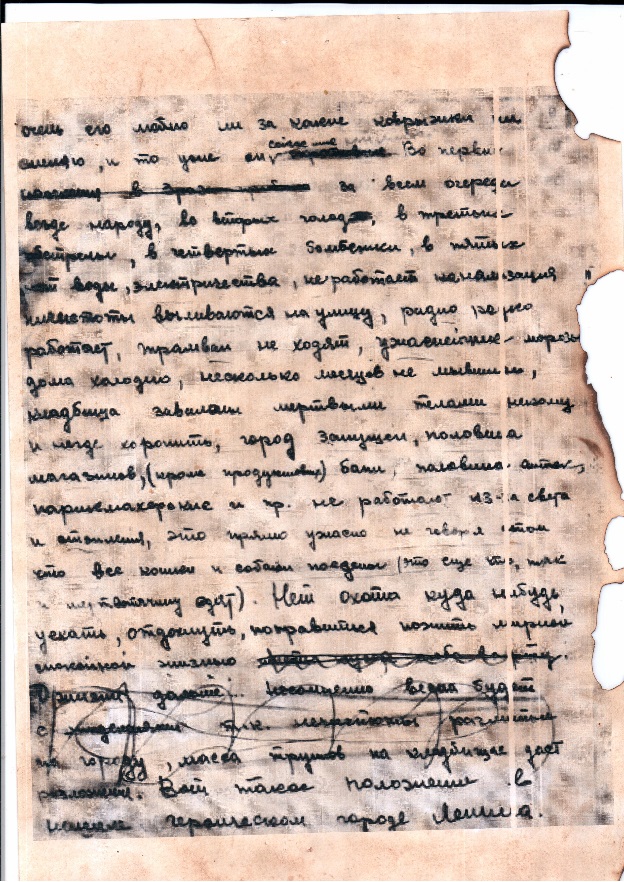 очень его мало ли за какие коврижки
сменяю, и то уже ему Во первы
за всем очереди
везде народу, во вторых голод, в третьих
обстрелы, в четвертых бомбежки, в пятых
нет воды, электричества, не работает канализация
нечистоты выливаются на улицу, радио редко
работает, трамваи не ходят, ужаснейшие морозы
дома холодно, несколько месяцев не мывшись,
кладбища завалены мертвыми телами некому
и негде хоронить, город запущен, половина
магазинов, (кроме продуктовых) бань, половина аптек,
парикмахерские и пр. не работают из-за света
и отопления, это прямо ужасно не говоря о том
что все кошки и собаки поедены (это еще что, так
и мертвячину едят). Нет охота куда нибудь
уехать, отдохнуть, поправиться пожить мирной
спокойной жизнью
дальше... Несомненно весна будет
с эпидемиями т.к. нечистоты разлиты
по городу, масса трупов на кладбище дает
разложение. Вот такое положение в
нашем героическом городе Ленина.